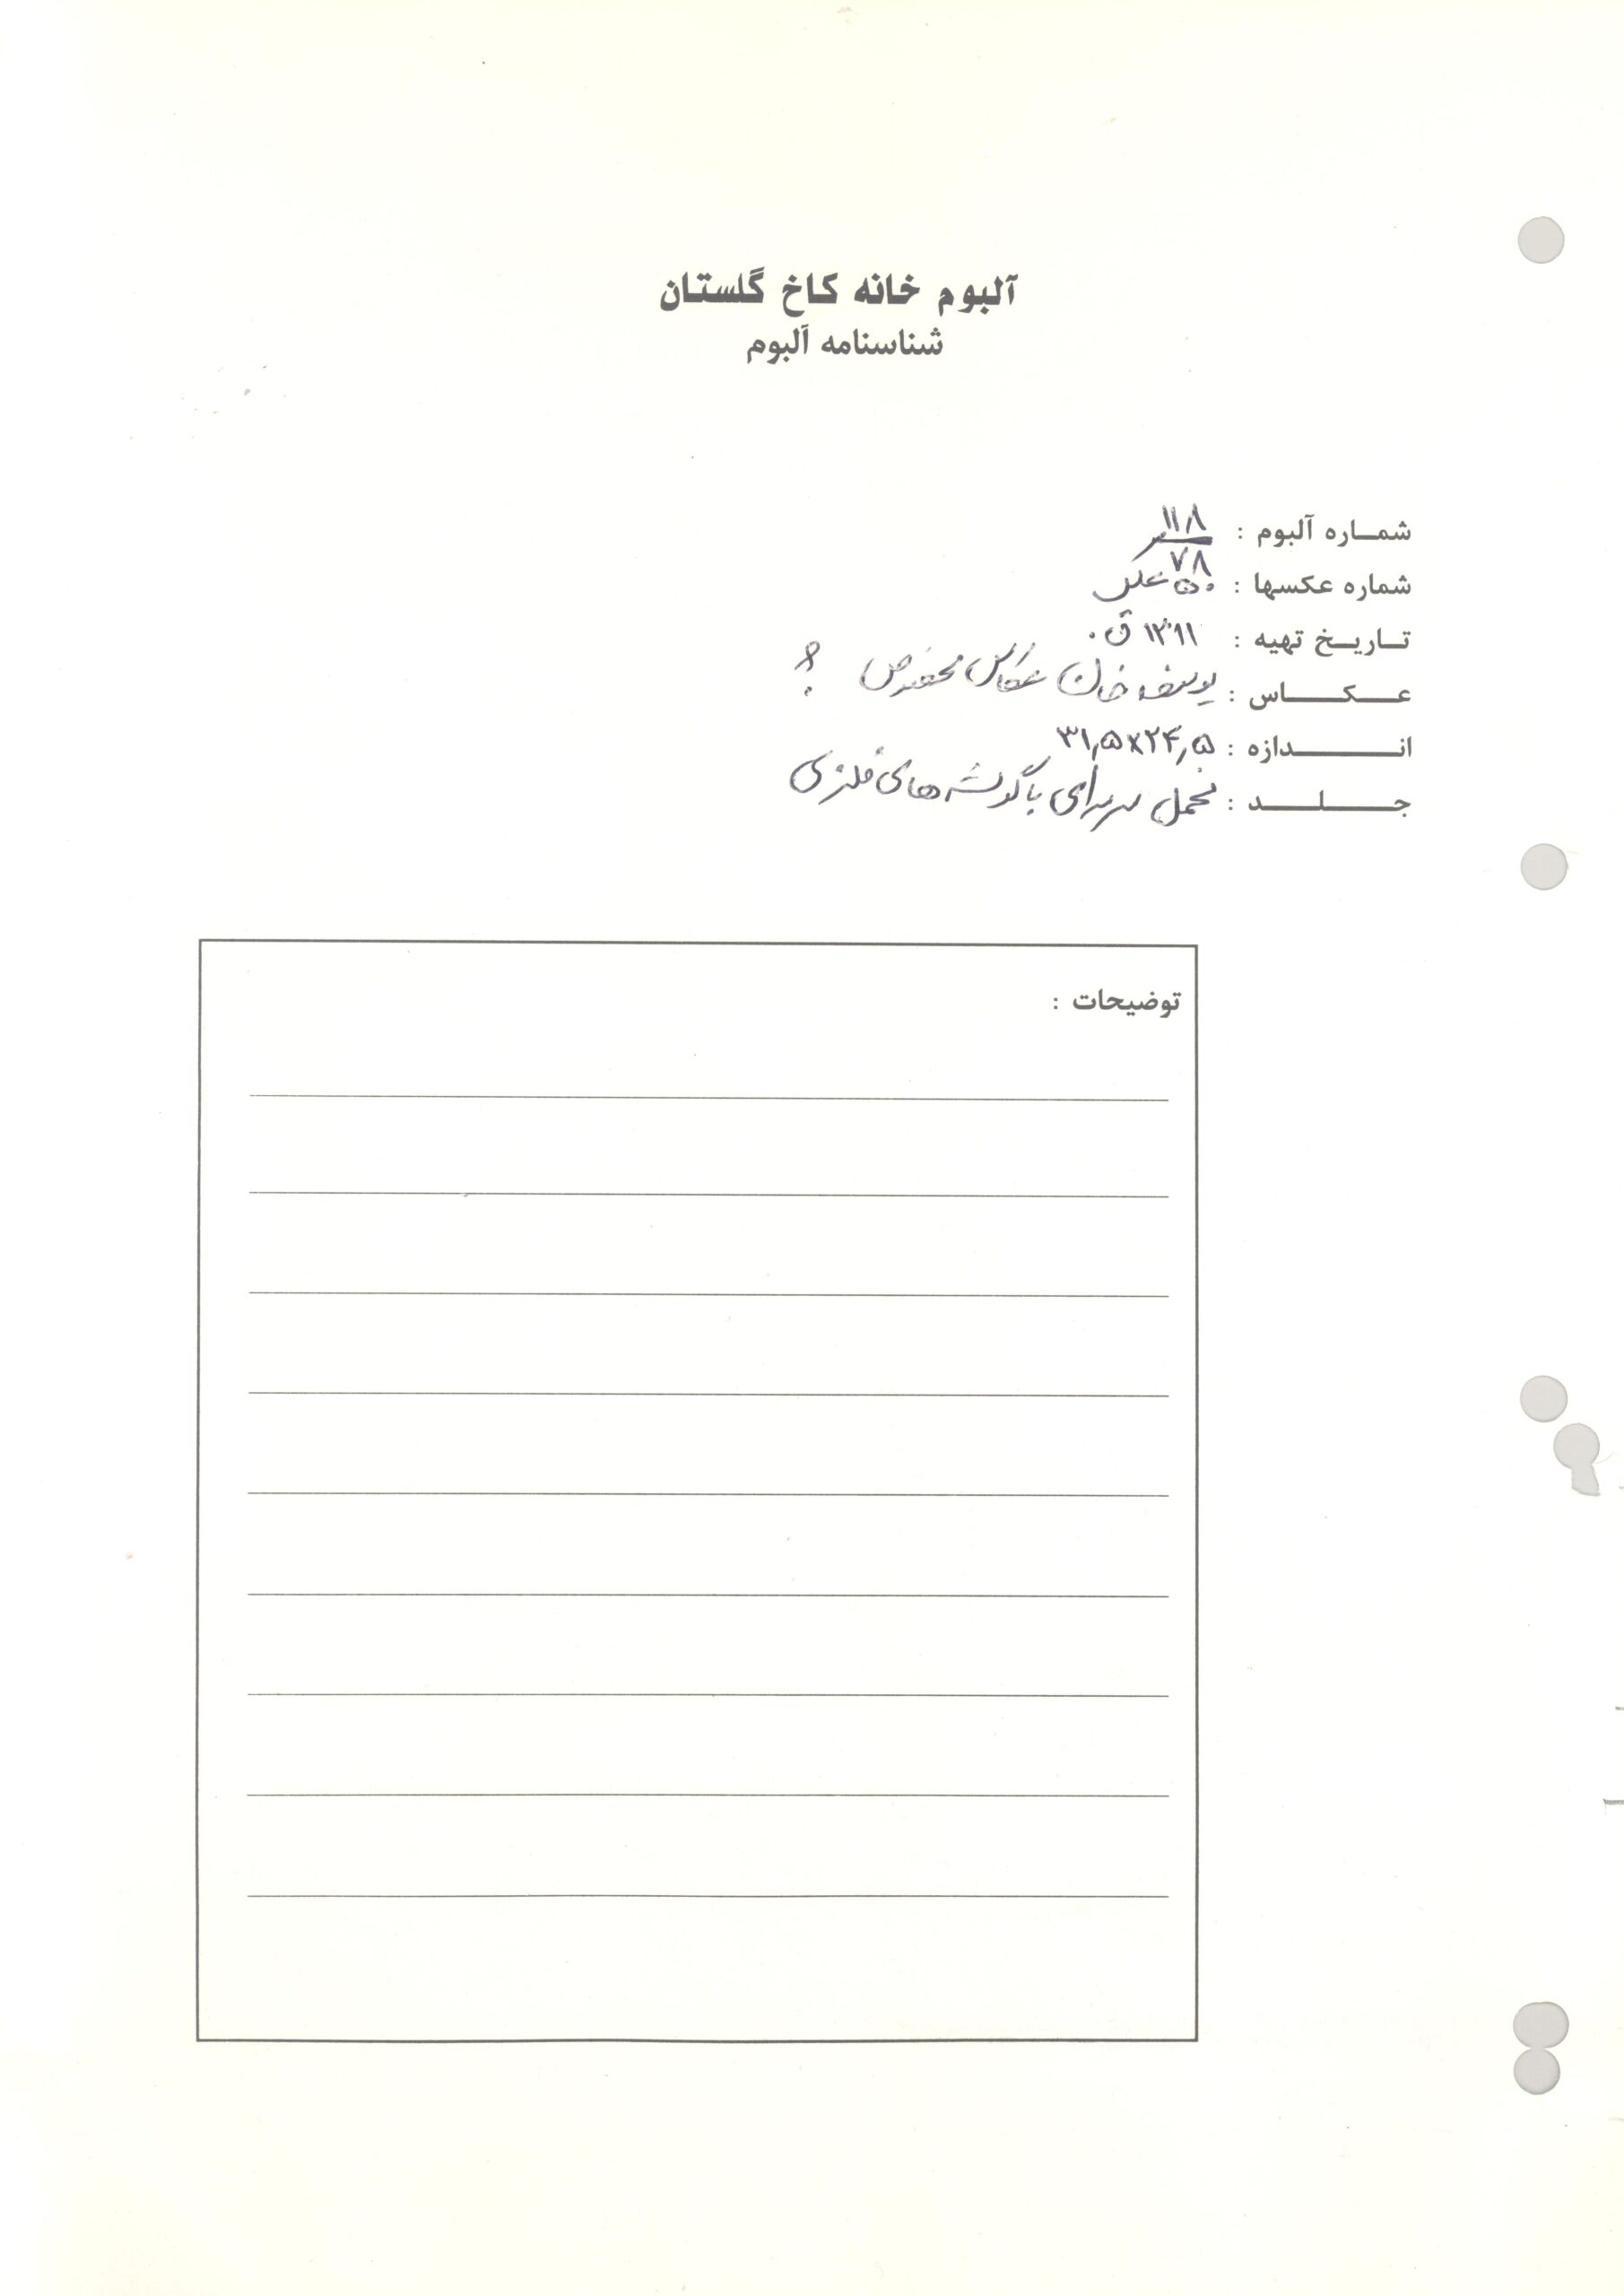 آلبوم خانه کاخ گلستان
شناسنامه آلبوم
شماره آلبوم : ۱۱۸
۷۸
شماره عکسها : ۵۰ عکس
تاریخ تهیه : ۱۳۱۱ ق.
عکاس : یوسف خان عکاس مخصوص ؟
اندازه : ۳۱٫۵x۲۴٫۵
جلد : مخمل سرمه‌ای با گوشه های فلزی
توضیحات :